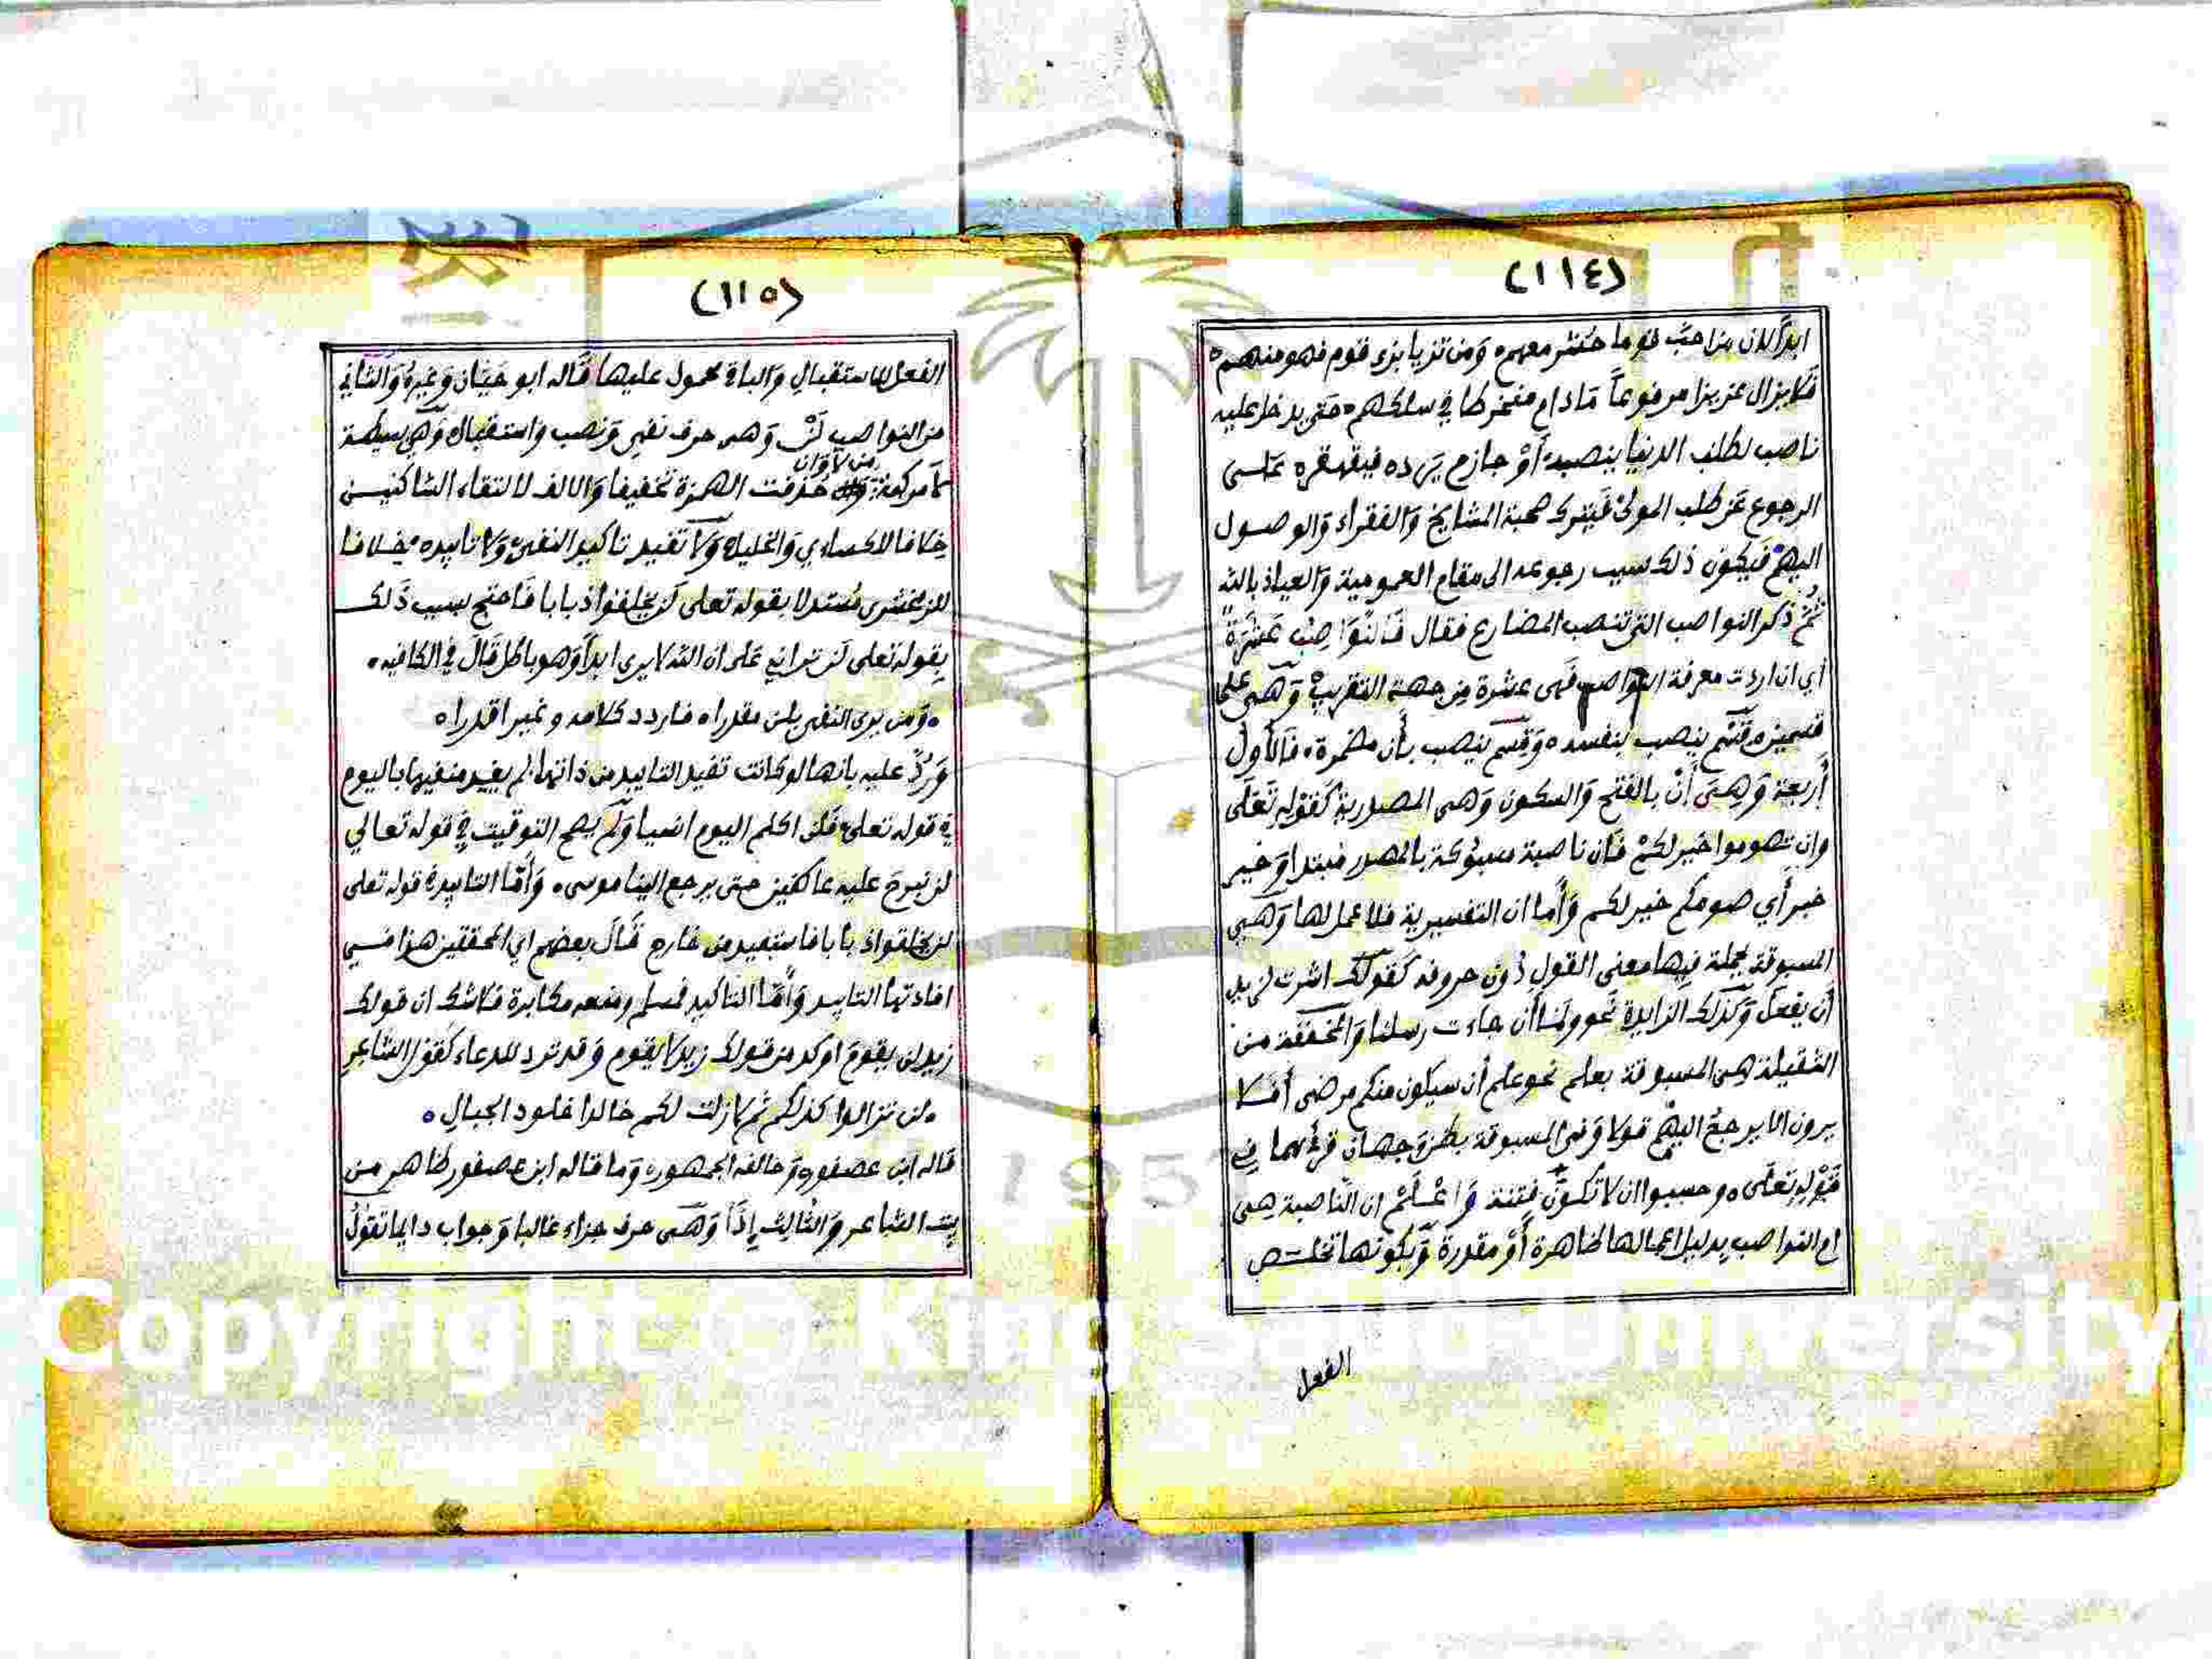 (١١٤)
ابدًا لان من احبَّ قوما حُشر معهم ومن تزيا بزى قوم فهو منهم
فلا يزال عزيزا مرفوعاً مَادام منخرطا في سلكهم حتى يدخل عليه
ناصب لطلب الدنيا ينصبه أوْ جازم يرده فيقهقره على
الرجوع عن طلب المولىٰ فيترك صحبة المشايخ وَالفقراء وَالوصول
اليهمْ فَيكون ذلك سبب رجوعه الى مقام العمومية وَالعياذ بالله
ثُمَّ ذكر النواصب التى تنصب المضارع فقال فَالنَّوَاصِبُ عَشَرَةٌ
أي ان اردت معرفة النواصب فهى عشرة مِن جهة التقريبْ وَهَى على
قسمين قَسْم ينصب بنفسه وَقَسم ينصب بأن مضمرة فَالأول
أربعة وَهِىَ أَنْ بالفتح وَالسكون وَهى المصدرية كَقَوْلِهِ تَعَالَى
وان تصوموا خَير لكمْ فَأن ناصبة مسبوكة بالمصدر مبتدا وَخير
خبر أَي صومكم خير لكم وَأَما ان التفسيرية فلا عمل لها وَهَى
المسبوقة بجملة فيها معنى القول دُون حروفه كَقولك اشرت لزيد
أَن يفعلَ وَكذلك الزايدة نَحو ولما أَن جاءت رسلنا وَالمخففة من
الثقيلة هى المسبوقة بعلم نحو علم أن سيكون منكم مرضى أفَلا
يرون الا يرجعُ اليهمْ قولا وَفى المسبوقة بظن وَجهان قرئ بهما فِي
قَوْلِهِ تعَالى وحسبوا ان لا تكونَُ فتنة وَاعْلَمْ ان الناصبة هِىَ
ام النواصب بدليل اعمالها ظاهرة أَوْ مقدرة وَبكونها تخلص
الفعل
(١١٥)
الفعل للاستقبالِ وَالباقى محمول عليها قَاله ابو حَيَّان وَغيرهُ وَالثاني
من النواصب لَنْ وَهى حرف نفى وَنصب وَاستقبال وَهَى بسيطة
لا مركبة من لا وَان حذفت الهمزة تخفيفا وَالالف لالتقاء الساكنين
خِلافا للكسائي وَالخليل وَلَا تفيد تاكيد النفى وَلا تابيده خِلافا
للزمخشرى مُستدلا بقوله تعالى لَن يخلقوا ذبابا فَاحتج بسبب ذَلك
بِقوله تعلى لَن ترانى عَلى ان الله لا يرى ابدًا وَهو باطل قَالَ في الكافيه
وَمن يرى النفى بلن مقدرا فاردد كلامه وغيرا قدرا
وَرُدَّ عليه بانها لو كانت تفيد التابيد من ذاتها لم يقيد منفيها باليوم
في قوله تعلى فَلن اكلم اليوم انسيا وَلَم يصح التوقيت فِي قوله تعالي
لن نبرحَ عليه عاكفين حتى يرجع الينا موسى وَأَمَّا التابيد في قوله تعلى
لن يخلقوا ذبابا فاستفيد من خارج قَالَ بعضهم اي المحققين هذا في
افادتها التابيد وَأَمَّا التاكيد فمسلم ومنعه مكابرة فَلا شك ان قولك
زيد لن يقومَ اوكد من قولك زيد لا يقوم وَقد ترد للدعاء كَقول الشاعر
لن تزالوا كذلكم ثم لا زلت لكم خالدا خلود الجبالِ
قَاله ابن عصفور وَخالفه الجمهور وَما قاله ابن عصفور ظاهر من
بيت الشاعر وَالثَّالِث إِذًا وَهَى حرف جزاء غالبا وَجواب دايما تقولُ
Copyright © King Saud University
195